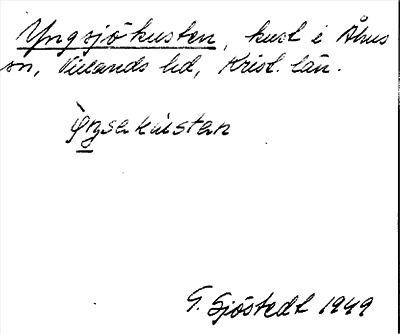 Yngsjökusten, kust i Åhus
sn, Villands hd, Krist. län.
ỳŋsakùstan
G. Sjöstedt 1949